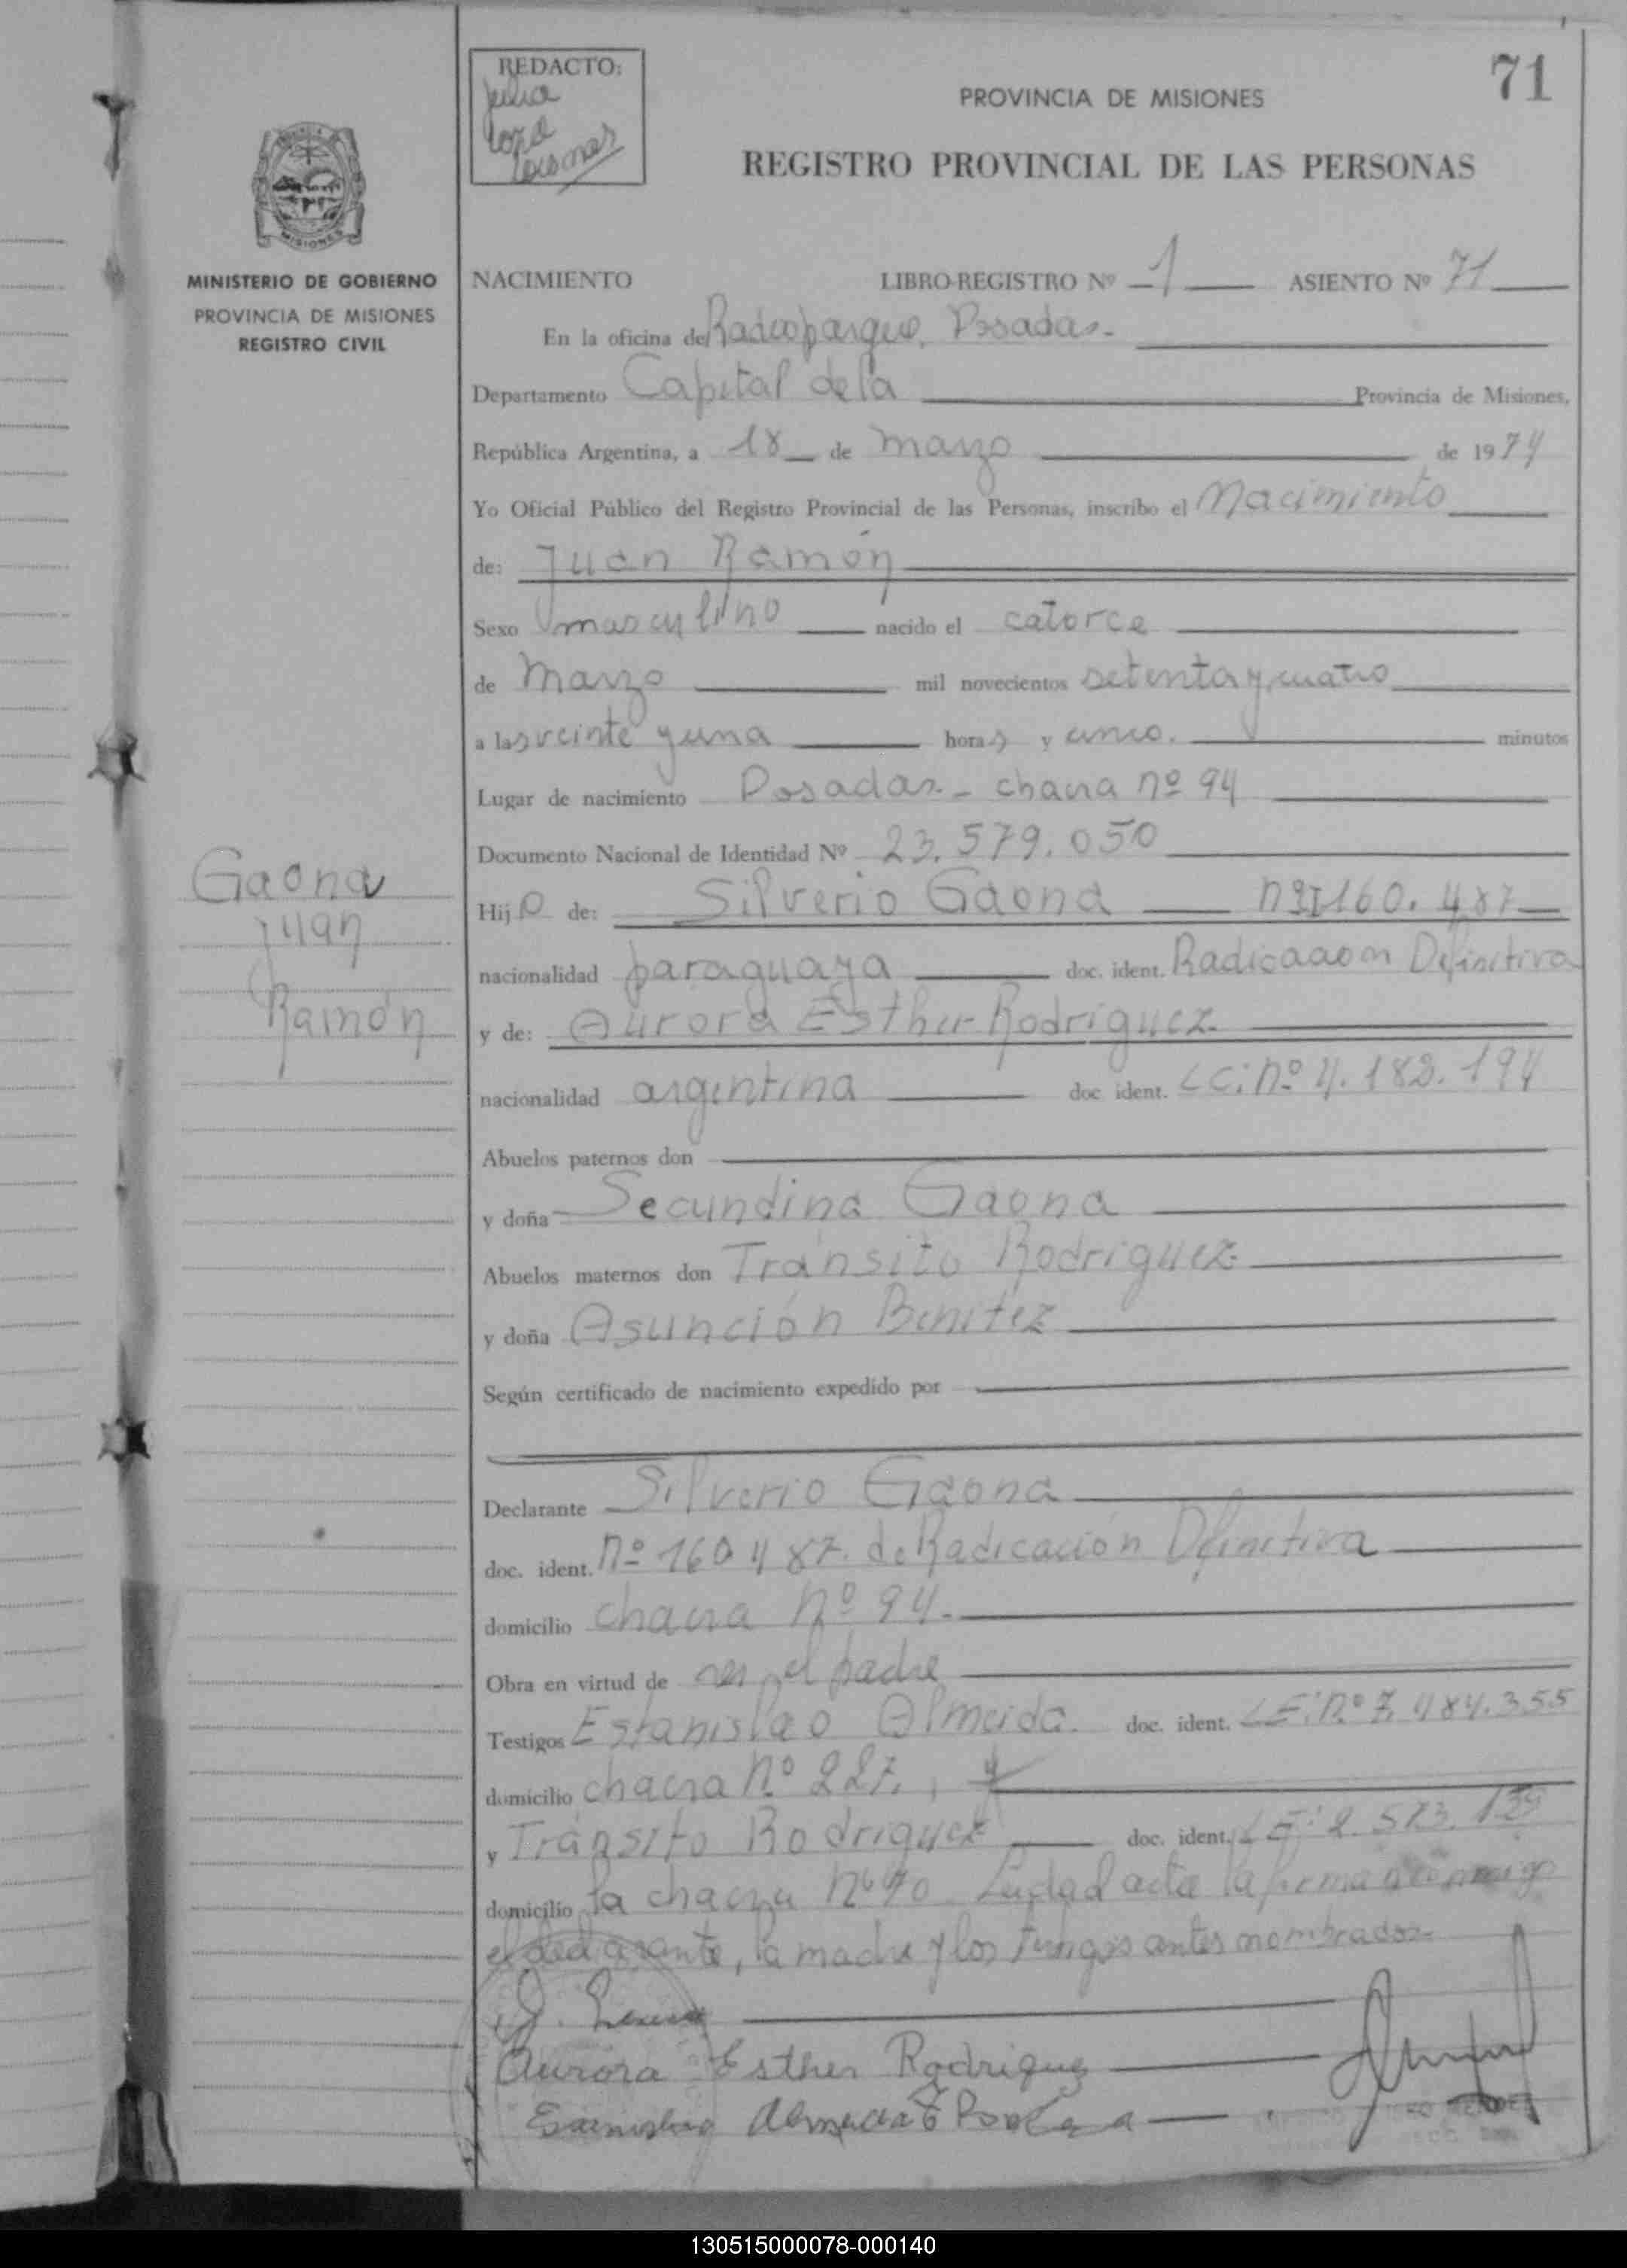 71
REDACTO:
Julia
PROVINCIA DE MISIONES
REGISTRO PROVINCIAL DE LAS PERSONAS
MISIONES
MINISTERIO DE GOBIERNO
PROVINCIA DE MISIONES
REGISTRO CIVIL
NACIMIENTO LIBRO-REGISTRO Nº 1 ASIENTO Nº 71
En la oficina de Radioparque, Posadas.-
Departamento Capital de la Provincia de Misiones,
República Argentina, a 18 de marzo de 1974
Yo Oficial Público del Registro Provincial de las Personas, inscribo el Nacimiento
de: Juan Ramón
Sexo masculino nacido el catorce
de Marzo mil novecientos setenta y cuatro
a las veinte y una horas y cinco. minutos
Lugar de nacimiento Posadas - chacra nº 94
Documento Nacional de Identidad Nº 23.579.050
Gaona
Juan
Ramón
Hijo de: Silverio Gaona 160.487
nacionalidad paraguaya doc. ident. Radicación Definitiva
y de: Aurora Esther Rodriguez
nacionalidad argentina doc. ident. LC: nº 4.182.194
Abuelos paternos don
y doña Secundina Gaona
Abuelos maternos don Tránsito Rodriguez
y doña Asunción Benitez
Según certificado de nacimiento expedido por
Declarante Silverio Gaona
doc. ident. nº 160487. de Radicación Definitiva
domicilio chacra nº 94.-
Obra en virtud de ser el padre
Testigos Estanislao Almeida. doc. ident. LE: nº 7.484.355
domicilio chacra nº 227, y
y Tránsito Rodriguez doc. ident. LE: 2.573.139
domicilio la chacra nº 70 acta la firma conmigo
el declarante, la madre y los testigos antes nombrados.-
Aurora Esther Rodriguez
Almeida
130515000078-000140